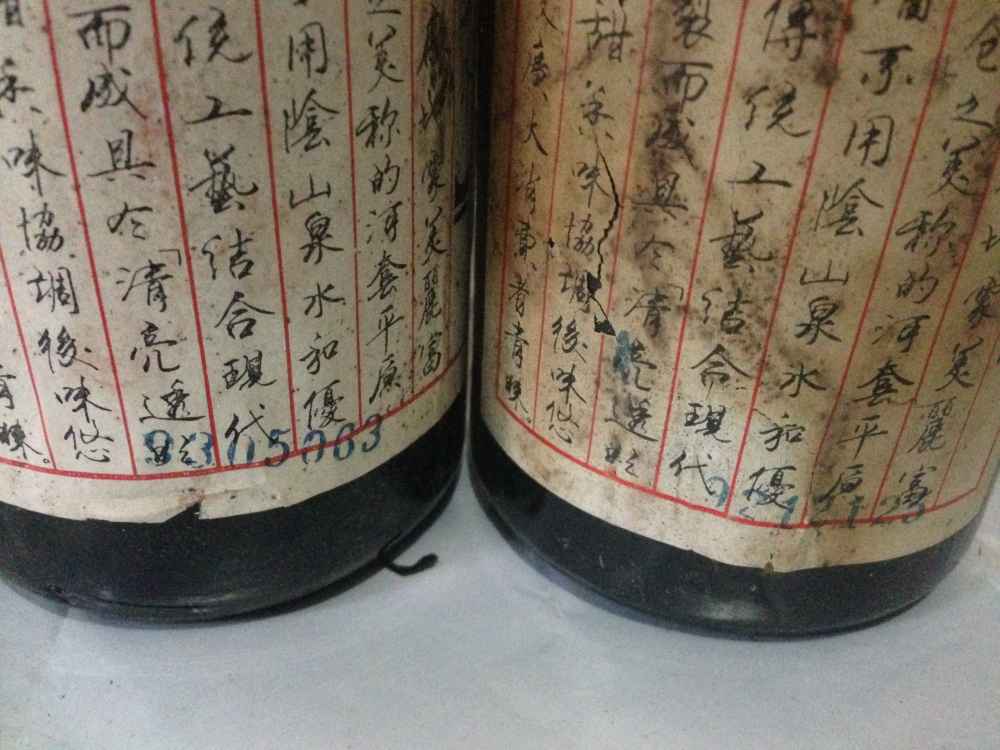 蒙美麗富
之美称的河套平原
用陰山泉水和優
统工藝结合現代
而成具令「清亮透
味協調後味悠
睞。
93105063
蒙美麗富
之美称的河套平原
用陰山泉水和優
傳统工藝结合現代
裂而成具令「清亮透
甜、味協調後味悠
廣大